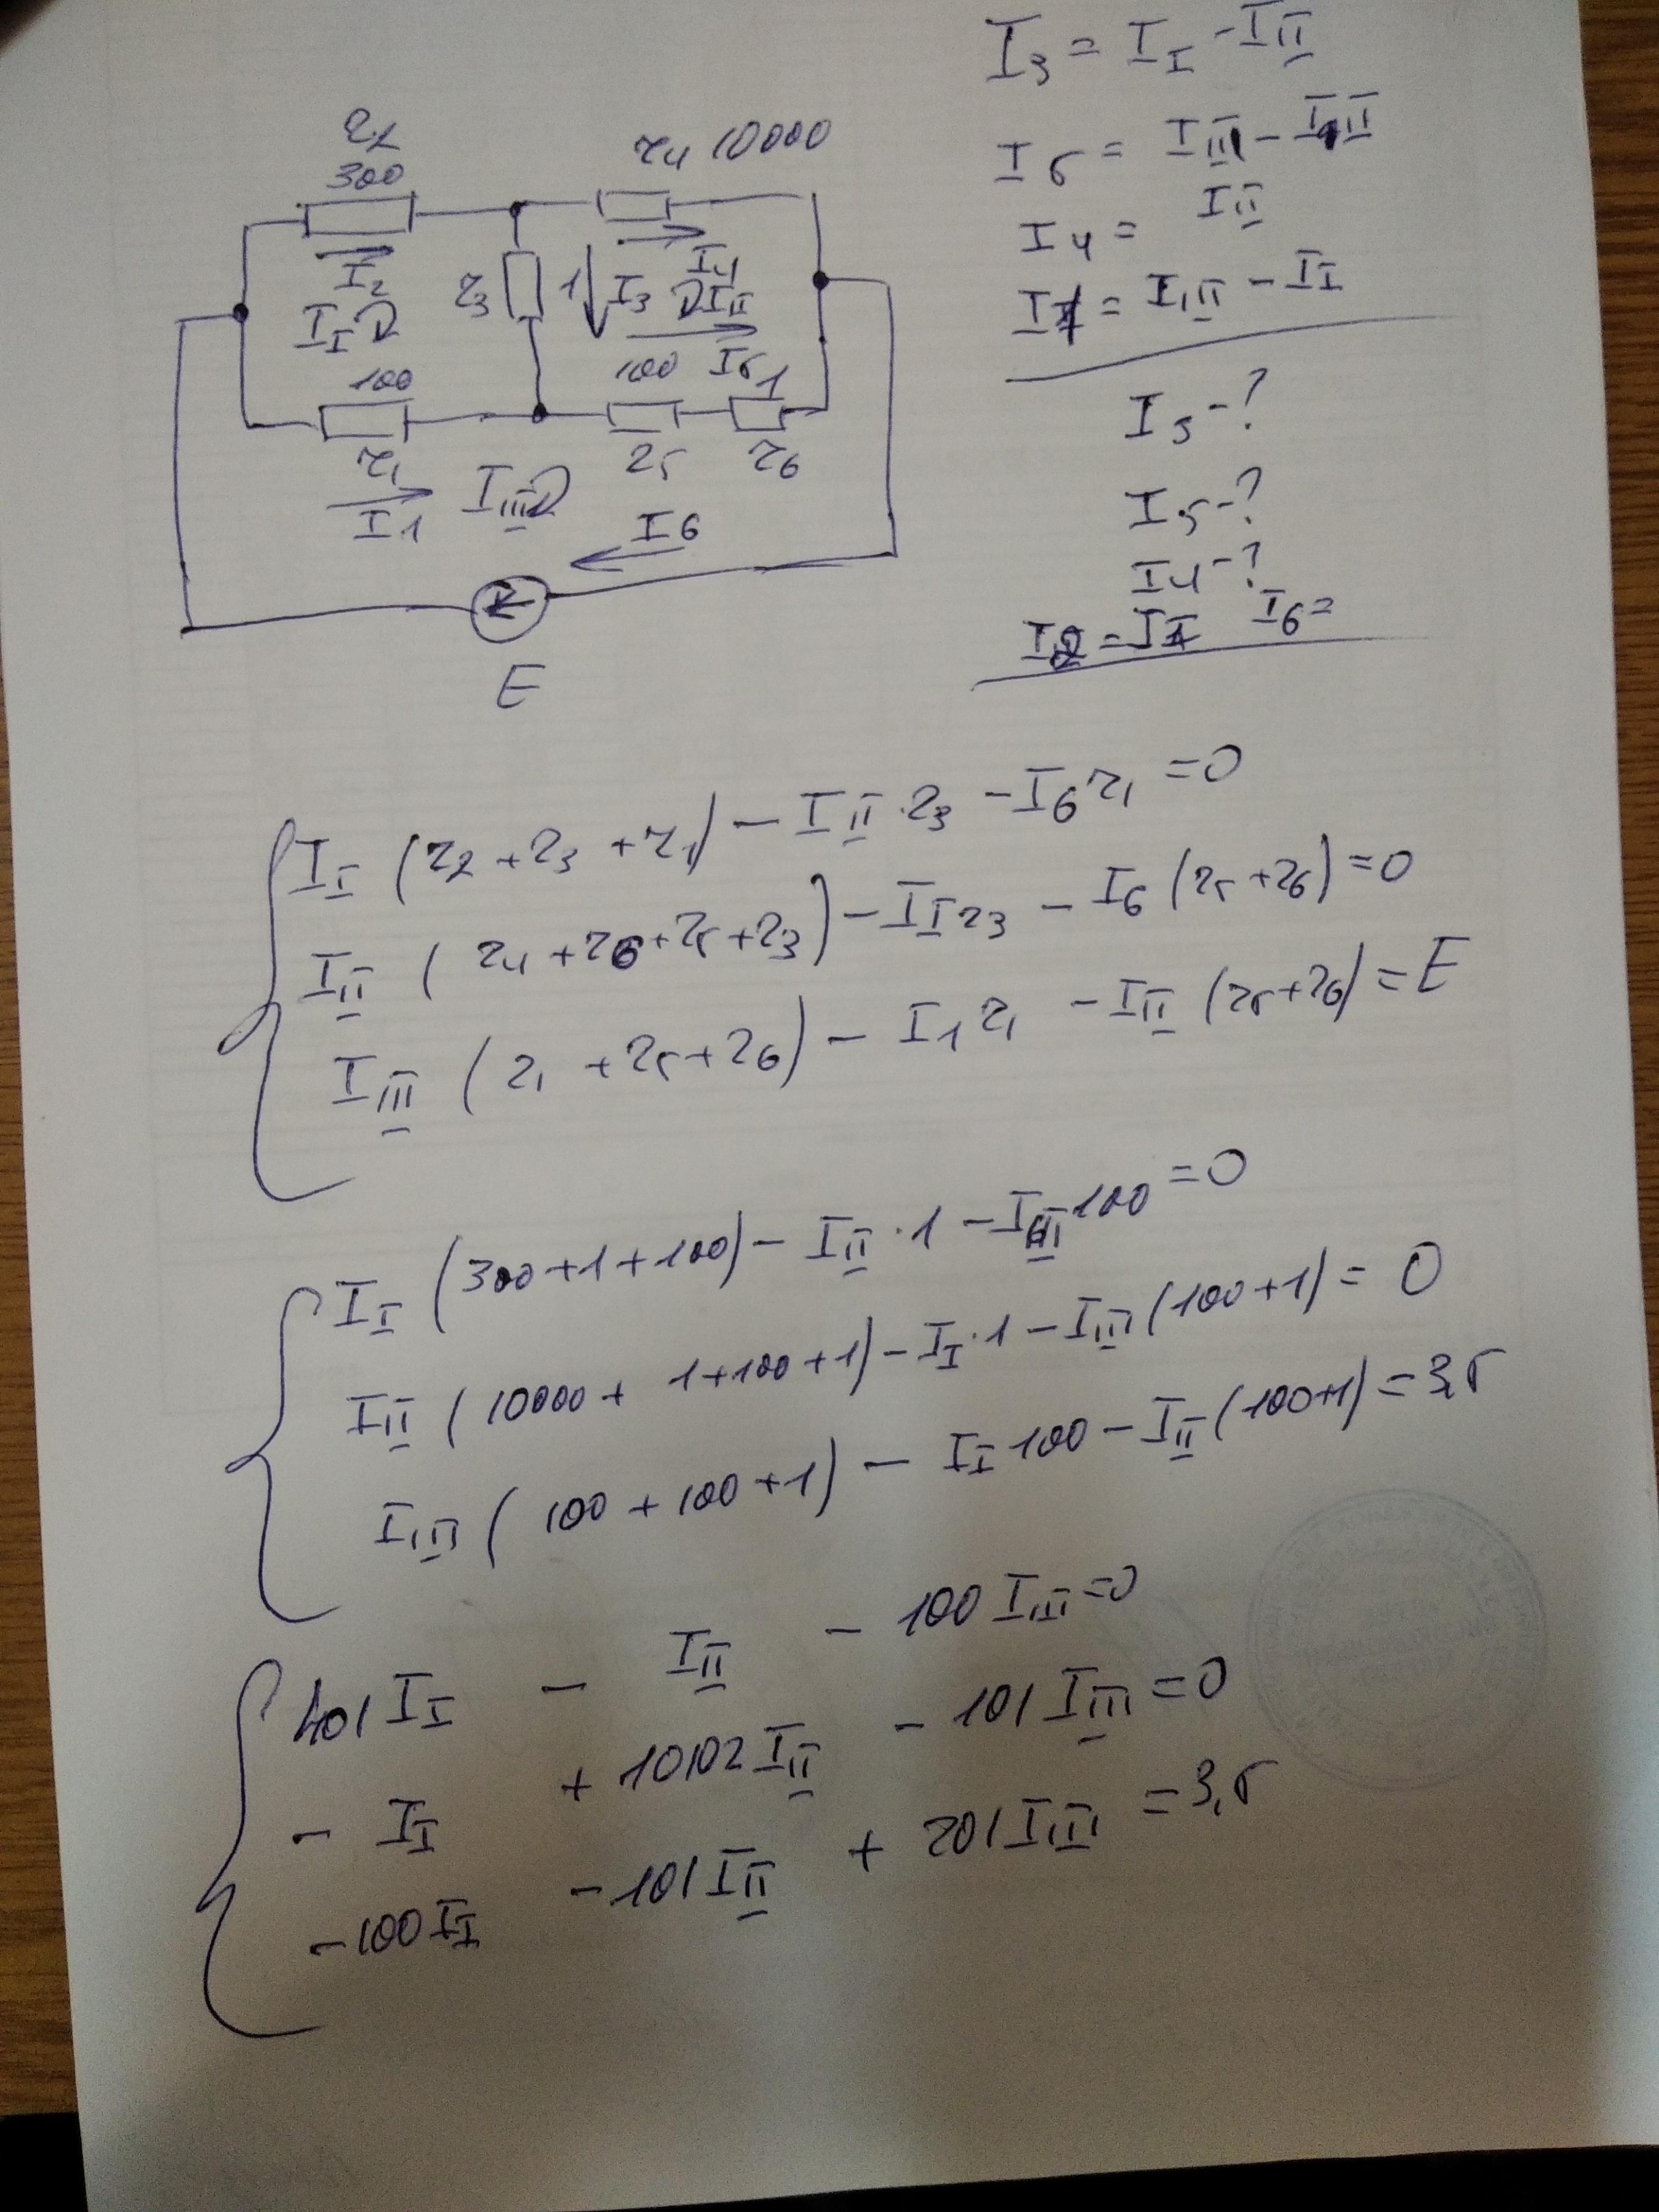 r₂
300
r₄ 10000
I₂
r₃
1
I₃
I₄
I_I
I_II
100
r₁
I₁
100
I₅
1
r₅
r₆
I_III
I₆
E
I₃ = I_I - I_II
I₅ = I_III - I_II
I₄ = I_II
I₁ = I_III - I_I
I₃ - ?
I₅ - ?
I₄ - ?
I₂ = I_I I₆ =
I_I (r₂ + r₃ + r₁) - I_II · r₃ - I₆ r₁ = 0
I_II (r₄ + r₆ + r₅ + r₃) - I_I r₃ - I₆ (r₅ + r₆) = 0
I_III (r₁ + r₅ + r₆) - I₁ r₁ - I_II (r₅ + r₆) = E
I_I (300 + 1 + 100) - I_II · 1 - I_III 100 = 0
I_II (10000 + 1 + 100 + 1) - I_I · 1 - I_III (100 + 1) = 0
I_III (100 + 100 + 1) - I_I 100 - I_II (100 + 1) = 3,5
401 I_I - I_II - 100 I_III = 0
- I_I + 10102 I_II - 101 I_III = 0
- 100 I_I - 101 I_II + 201 I_III = 3,5